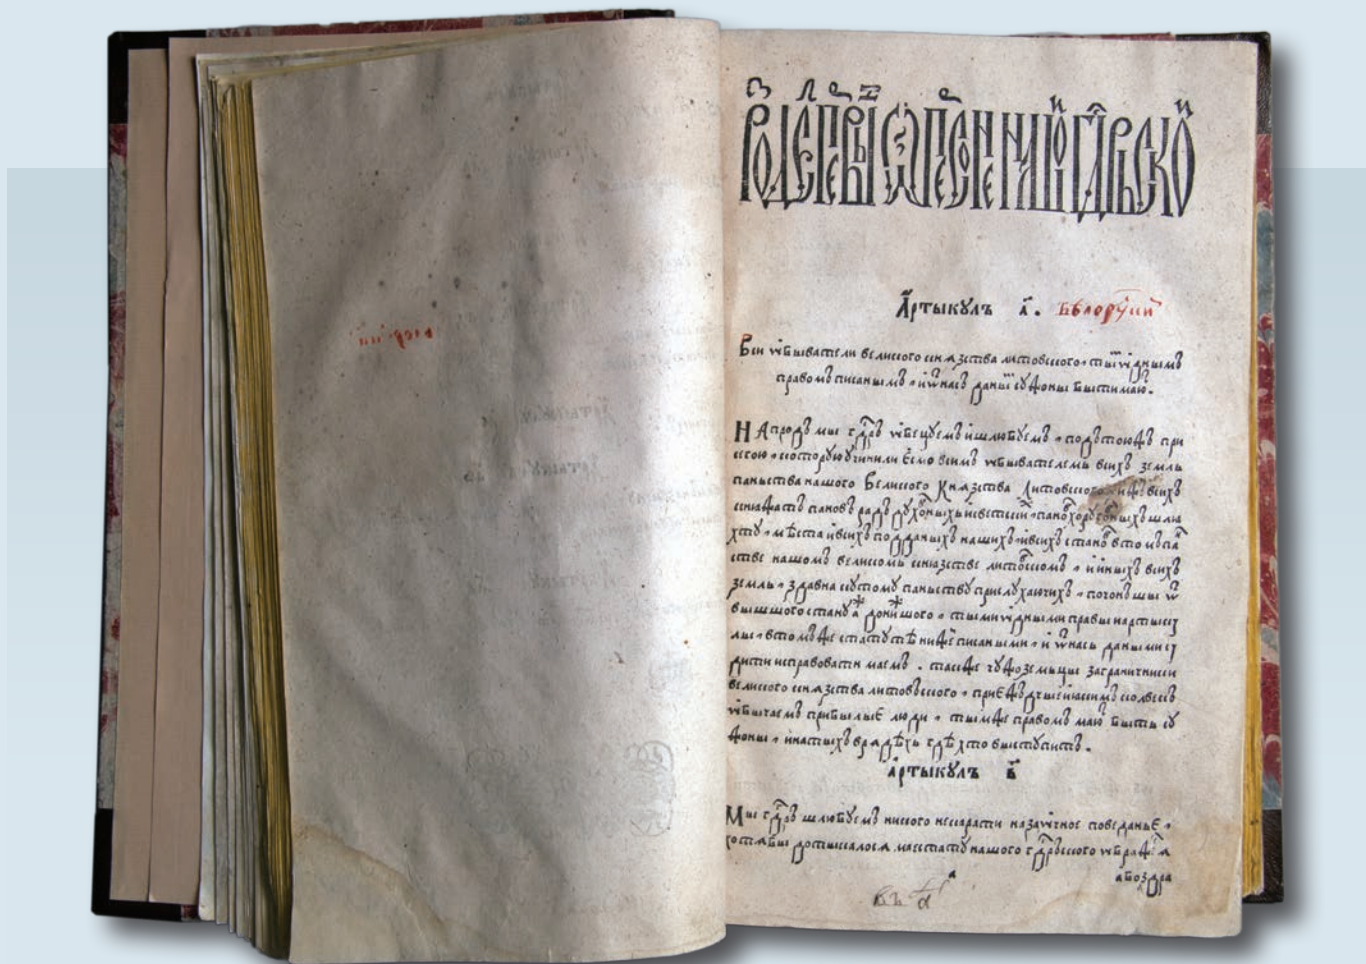 РОЗДЕЛ ПЕРВЫЙ Ѡ ПЕРСОНЕ НАШОЙ ГДРЬСКОЙ
Артыкулъ а҃. Бѣлоруский
Вси ѡбыватели великого князства литовского, тым ѡднымъ
правомъ писанымъ, и ѿ насъ даным сужоны быти мають.
НАпродъ мы гдръ ѡбецуемъ и шлюбуемъ, подътоюжъ при
сегою, которую учинили Есмо всимъ ѡбывателемъ всихъ земль
паньства нашого Великого Князства Литовского, ижъ всихъ
княжатъ пановъ радъ духовныхъ и светских, панов хоруговныхъ шля
хту, мѣста и всихъ подданыхъ нашихъ, и всихъ станов втомъ пан
стве нашомъ великомъ князстве литовском, и иныхъ всихъ
земль, здавна ку тому паньству прислухаючихъ, почоншы ѿ
вышшого стану аж до нижшого, тыми ѡдными правы и артыку
лы, втомъже статутѣ ниже писаными, и ѿ насъ даными су
дити и справовати маем. также чужоземцы заграничники
великого князства литовъского, приЕждчые и якимъ кольвекъ
ѡбычаемъ прибылыЕ люди, тымже правомъ мають быть су
жоны, и натыхъ врядѣхъ гдѣ хто выступить.
Артыкулъ в҃
Мы гдръ шлюбуемъ никого некарати на заѡчное поведаньЕ,
хотябы дотыкалося маестату нашого гдрьского ѡбраженья
або здра